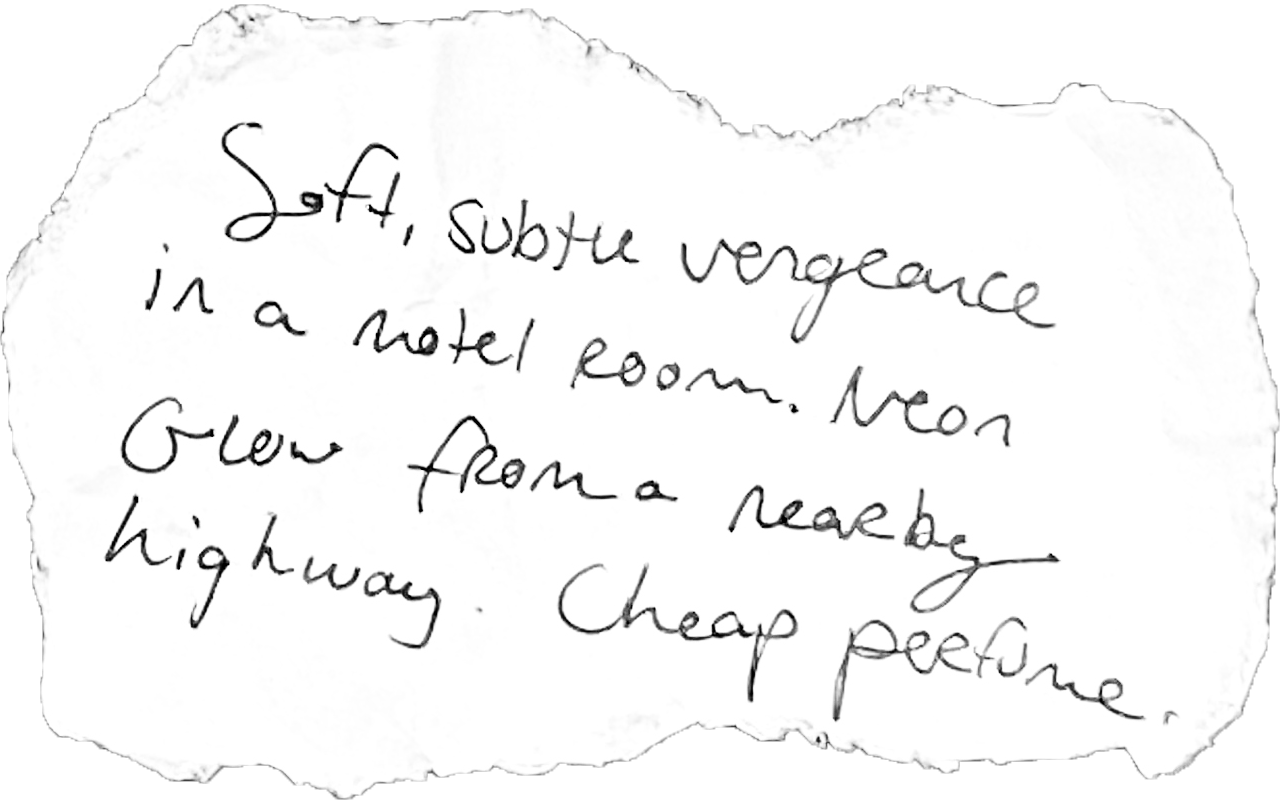 Soft, subtle vengeance
in a motel room. Neon
Glow from a nearby
highway. Cheap perfume.